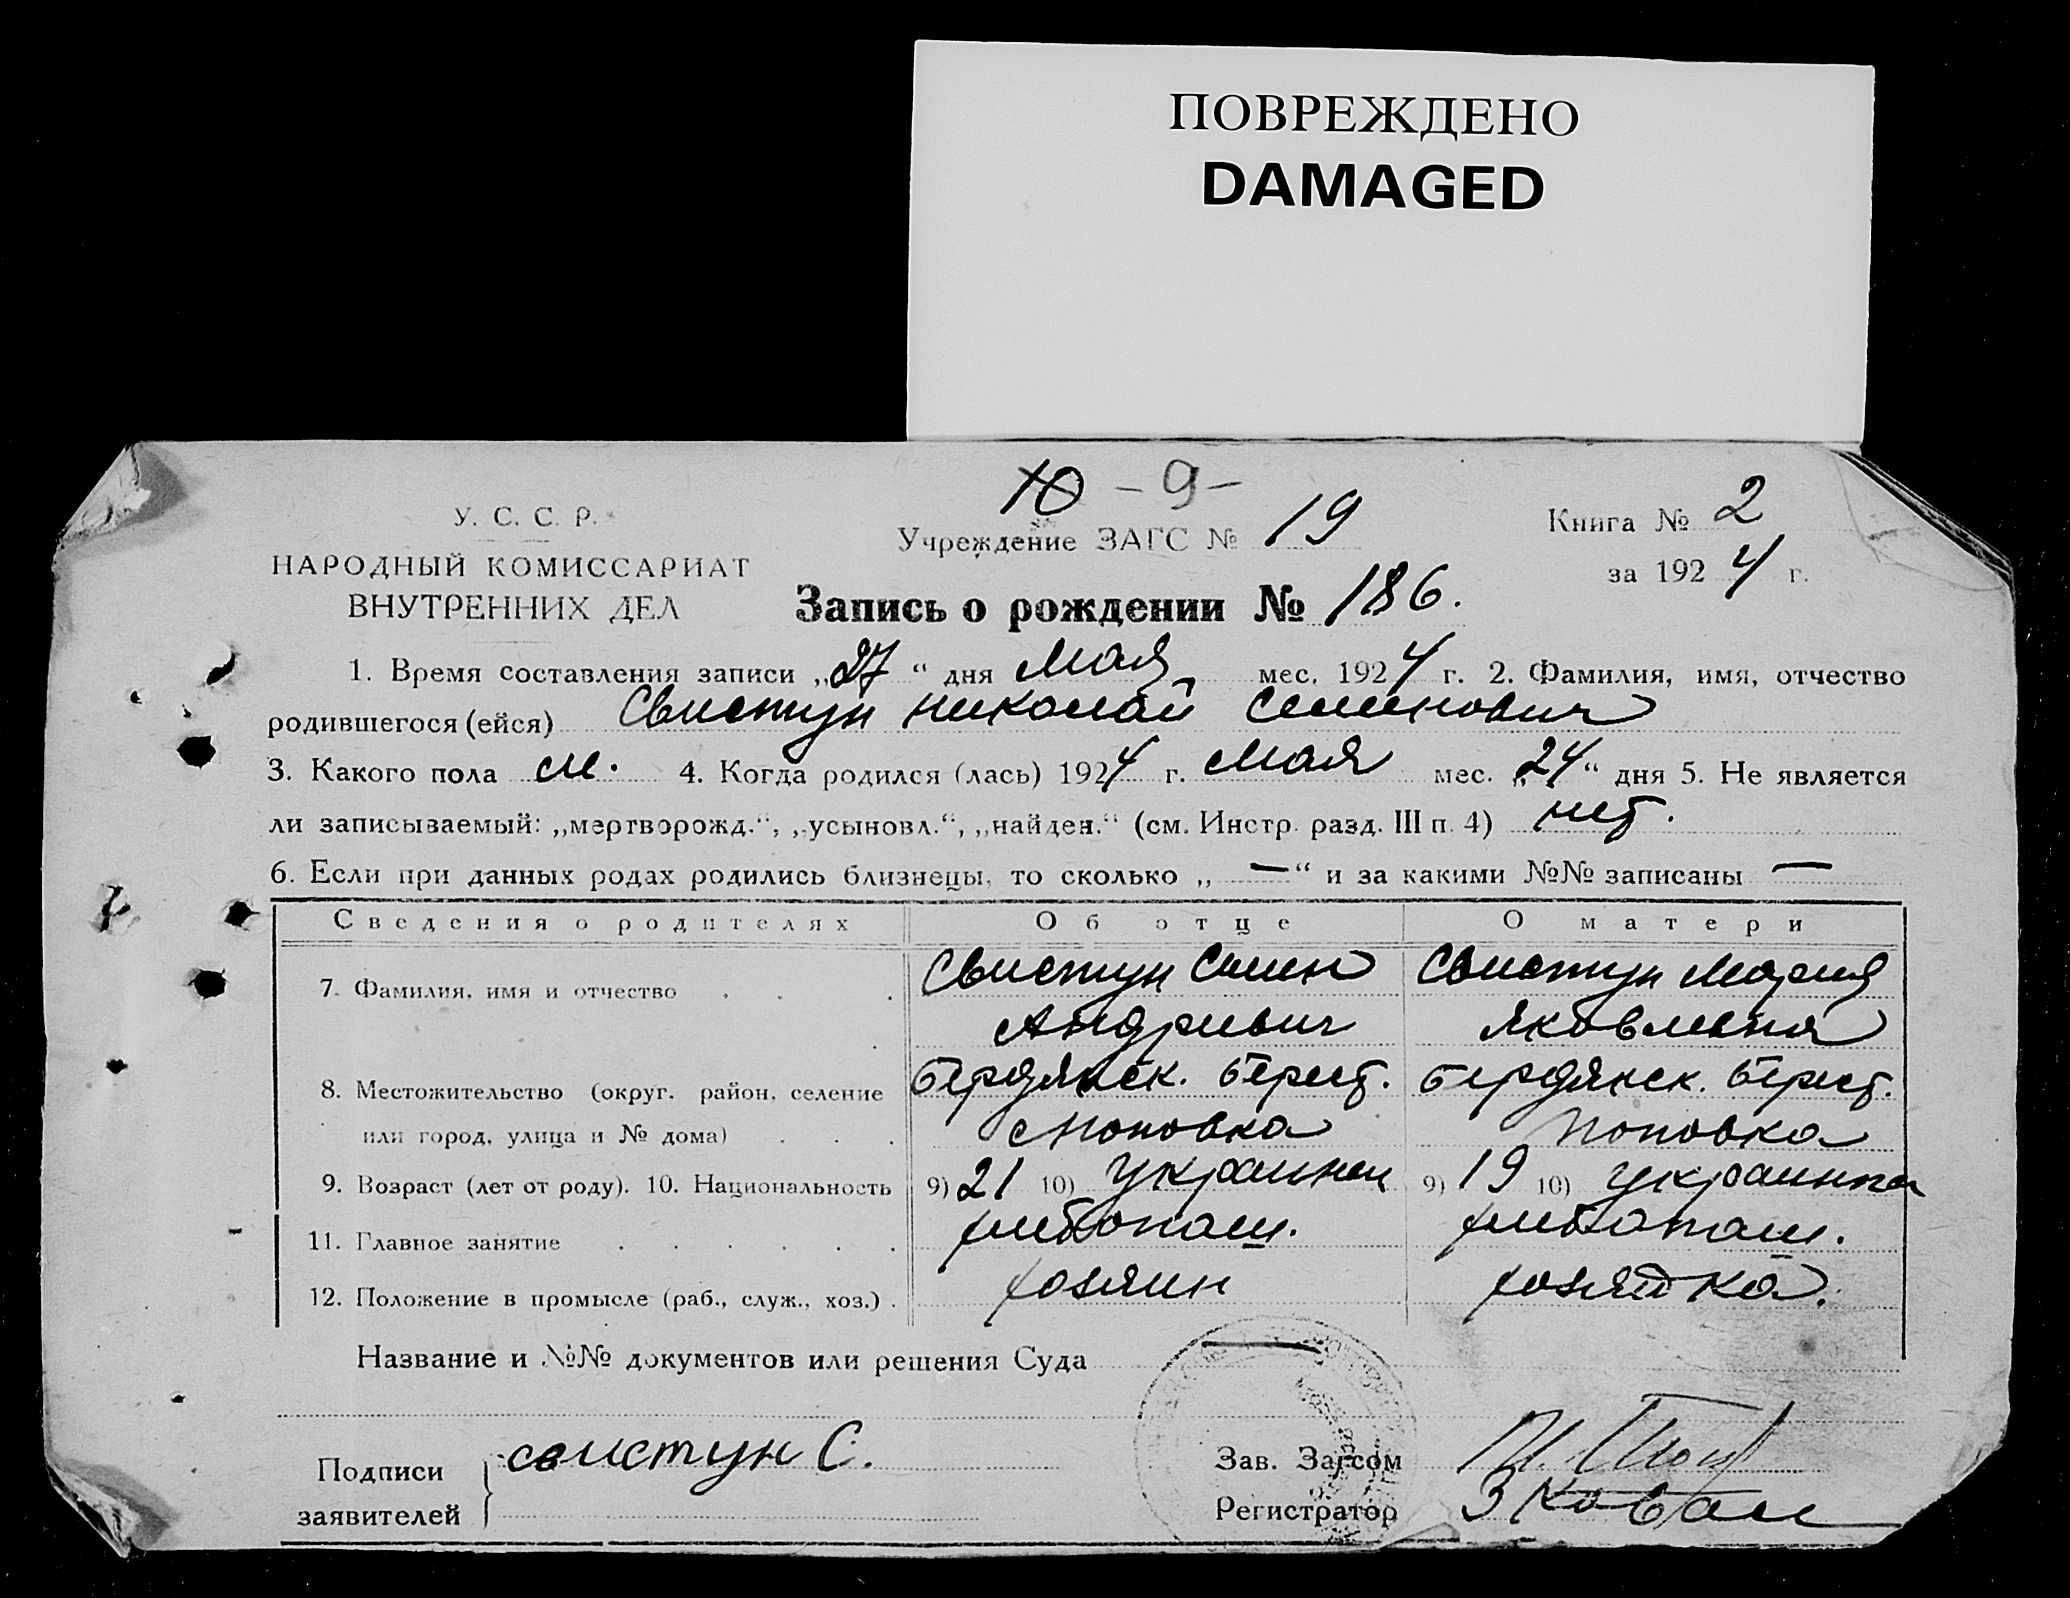 ПОВРЕЖДЕНО
DAMAGED
10 - 9 -
У. С. С. Р.
НАРОДНЫЙ КОМИССАРИАТ
ВНУТРЕННИХ ДЕЛ
Учреждение ЗАГС № 19
Книга № 2
за 1924 г.
Запись о рождении № 186.
1. Время составления записи „27“ дня Мая мес. 1924 г. 2. Фамилия, имя, отчество
родившегося (ейся) Свистун Николай Семенович
3. Какого пола м. 4. Когда родился (лась) 1924 г. Мая мес. „24“ дня 5. Не является
ли записываемый: „мертворожд.“, „усыновл.“, „найден.“ (см. Инстр. разд. III п. 4) нет.
6. Если при данных родах родились близнецы, то сколько „—“ и за какими №№ записаны —
Сведения о родителях Об отце О матери
7. Фамилия, имя и отчество Свистун Семен Свистун Мария
Андриевич Яковлевна
8. Местожительство (округ, район, селение Бердянск. Берест. Бердянск. Берест.
или город, улица и № дома) с Поповка Поповка
9. Возраст (лет от роду). 10. Национальность 9) 21 10) украинец 9) 19 10) украинка
11. Главное занятие хлебопаш. хлебопаш.
12. Положение в промысле (раб., служ., хоз.) хозяин хозяйка.
Название и №№ документов или решения Суда —
Подписи
заявителей
свистун С.
Зав. Загсом
Регистратор